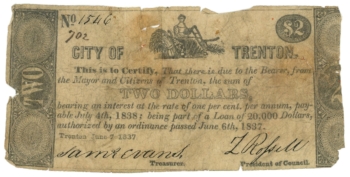 No 1546
702
$2
CITY OF TRENTON.
This is to Certify, That there is due to the Bearer, from
the Mayor and Citizens of Trenton, the sum of
TWO DOLLARS,
bearing an interest at the rate of one per cent. per annum, pay-
able July 4th, 1838: being part of a Loan of 20,000 Dollars,
authorized by an ordinance passed June 6th, 1837.
Trenton June 7 1837
Saml Evans
Treasurer.
President of Council.
TWO